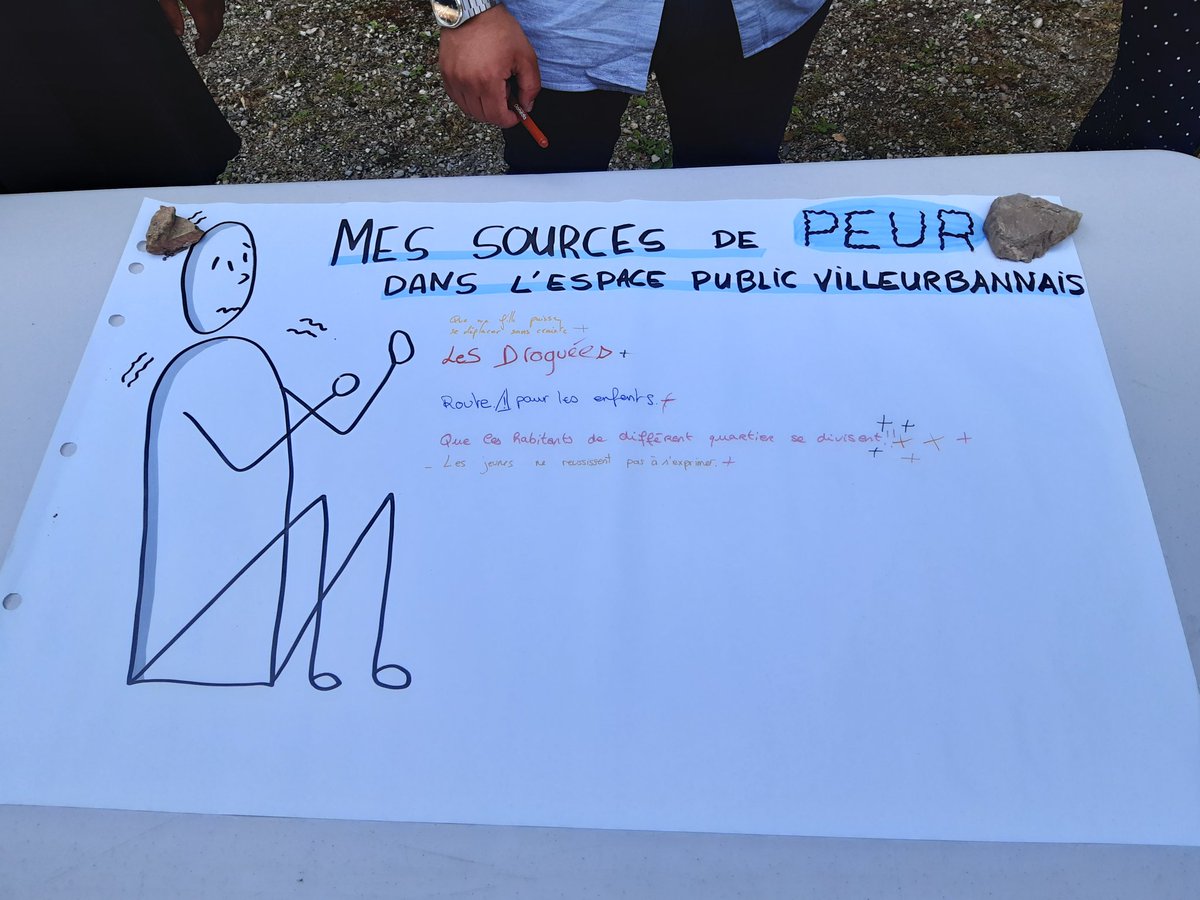 MES SOURCES DE PEUR
DANS L'ESPACE PUBLIC VILLEURBANNAIS
Que ma fille puisse
se déplacer sans crainte +
Les Droguées +
Route ⚠ pour les enfants. +
Que les habitants de différent quartier se divisent !! + + + + + + +
- Les jeunes ne reussissent pas à s'exprimer. +